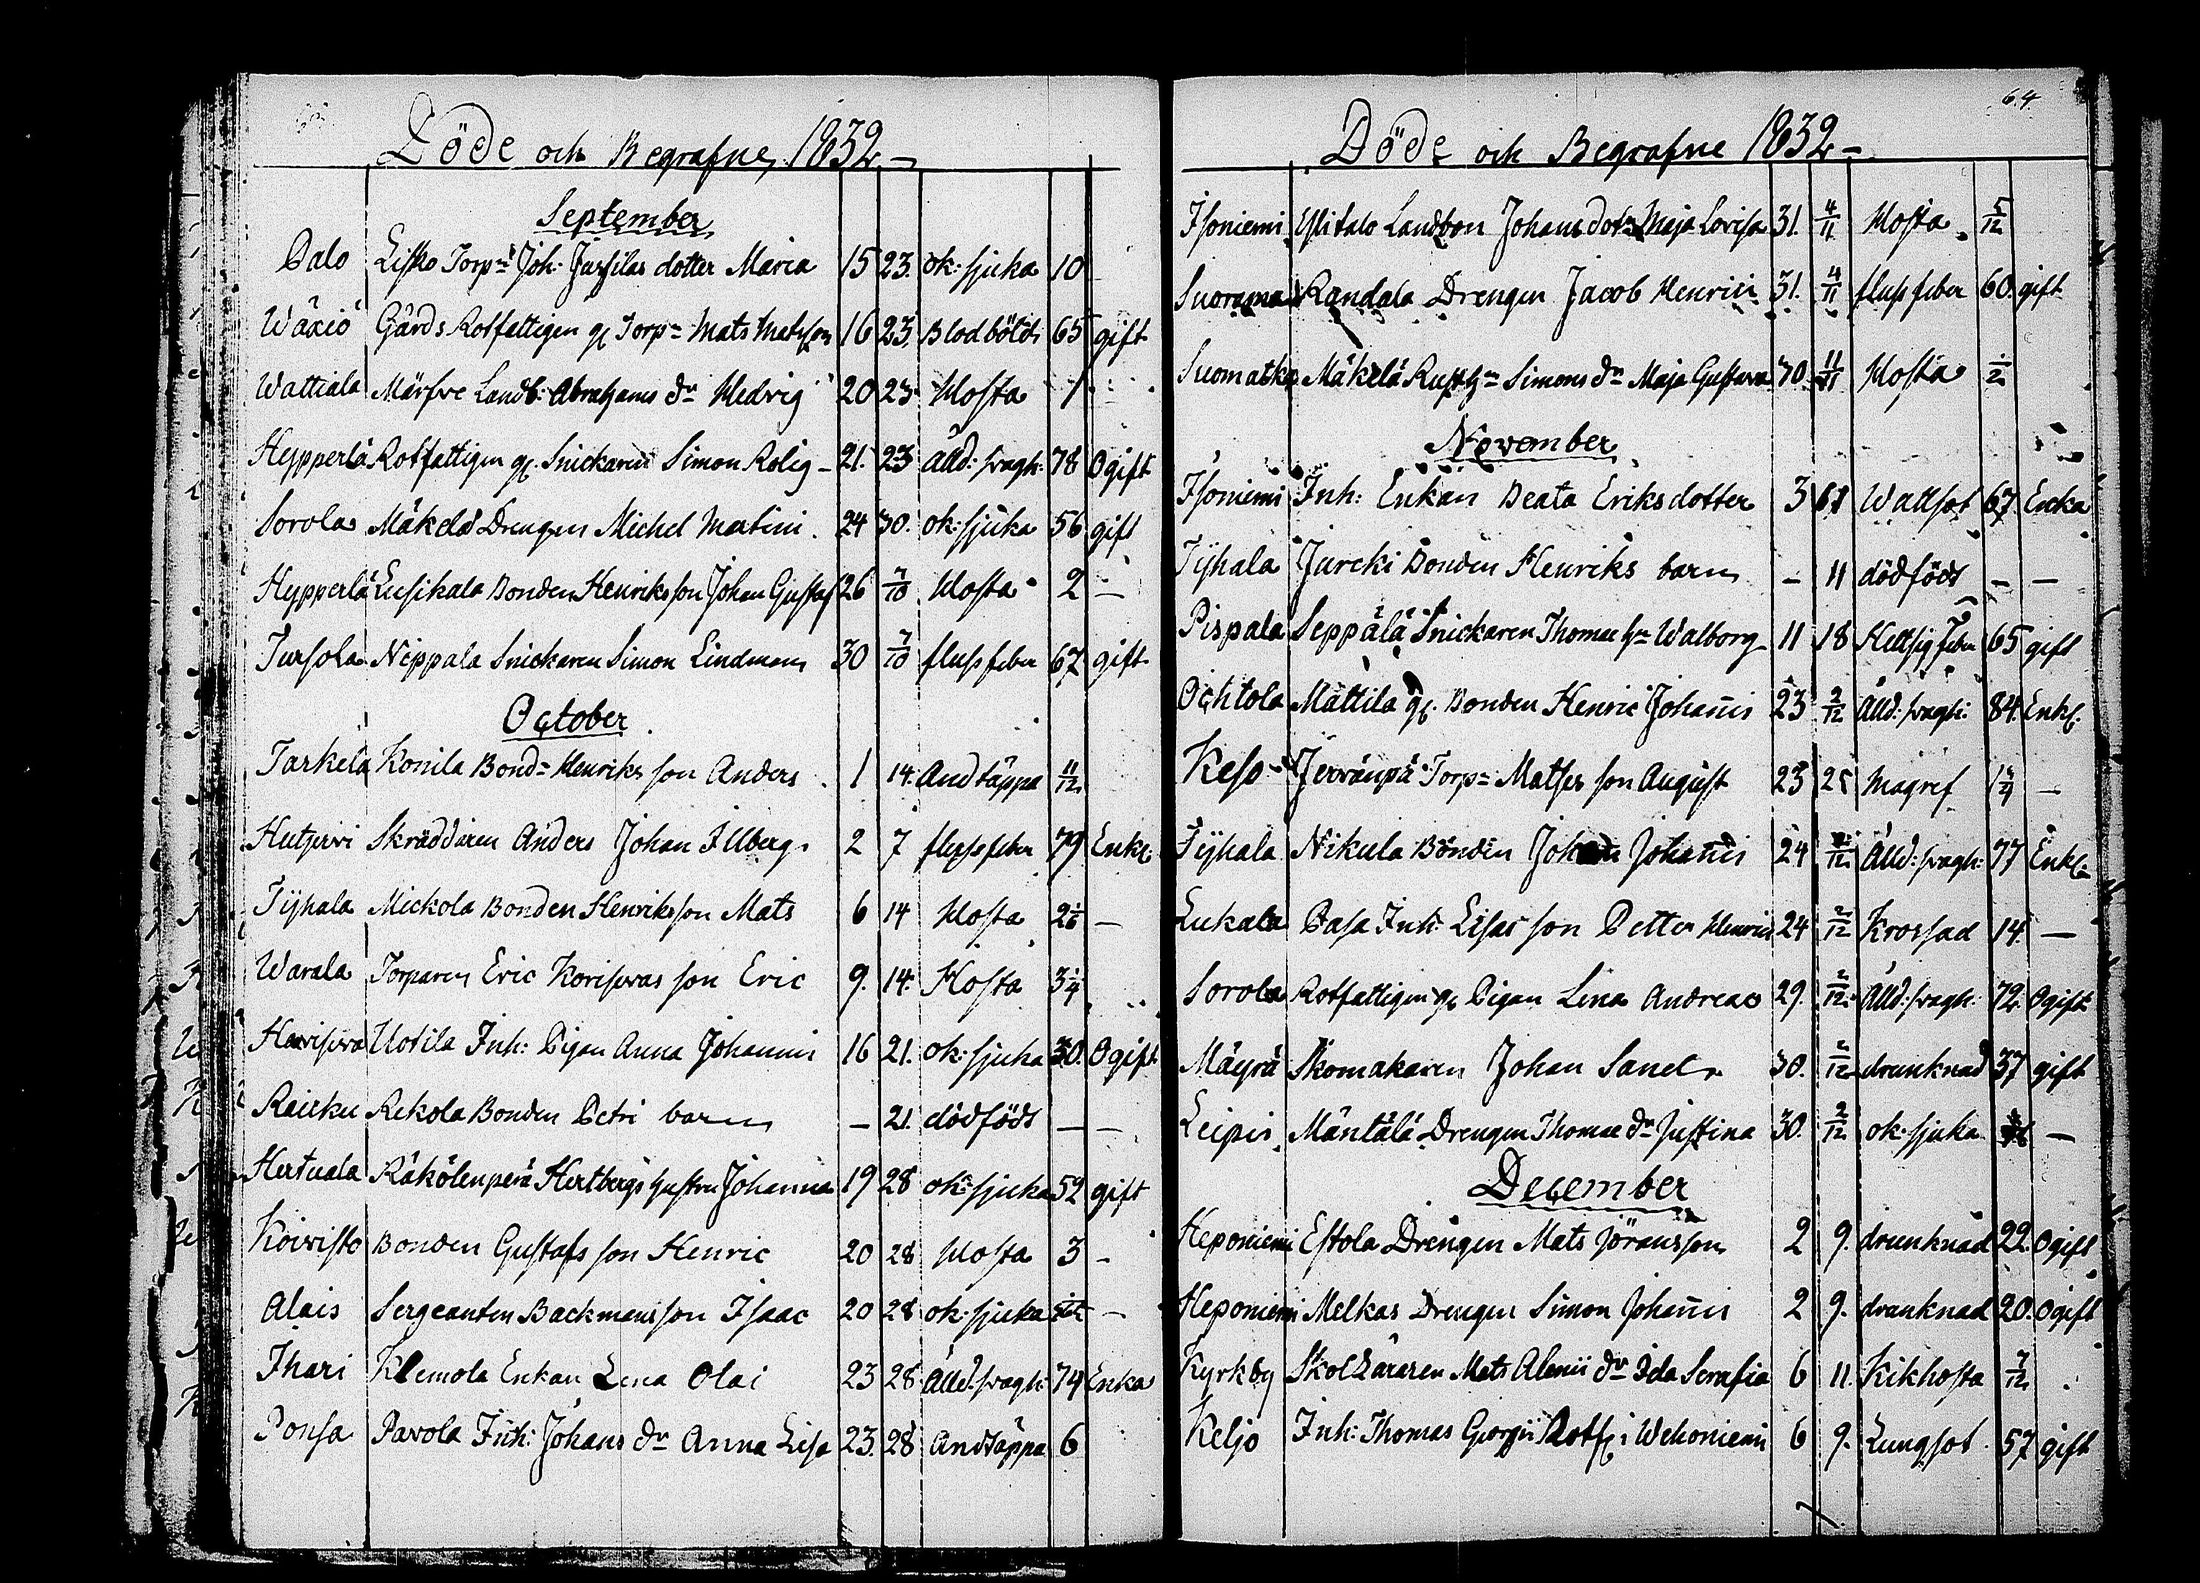 Döde och Begrafne 1832
September
Palo Lisko Torp: Joh: Jussilas dotter Maria 15 23. ok: sjuka 10
Wäxiö Gårds Rotfattigen gl Torp: Mats Matsson 16 23. Blodbölds 65 gift
Wattiala Märfve Landb: Abrahams dr Hedvig 20 23 Hosta 1
Hypperlä Rotfattigen gl. Snickaren Simon Rolig 21. 23 Ålld: svagh: 78 Ogift
Sorola Mäkelä Drengen Michel Martini 24 30. ok: sjuka 56 gift
Hypperlä Lusikala Bonden Henriks son Johan Gustaf 26 7/10 Hosta 2 –
Tursola Nippala Snickaren Simon Lindman 30 7/10 flussfeber 67 gift
October
Tarkela Konila Bond: Henriks son Anders 1 14. Andtäppa 11/12
Hutjervi Skräddaren Anders Johan Illberg 2 7 flussfeber 79 Enkl:
Tyhala Mickola Bonden Henriks son Mats 6 14 Hosta –
Warala Torparen Eric Korisevas son Eric 9. 14. Hosta 3 1/4
Uotila Inh: Pigan Anna Johannis 16 21. ok: sjuka 30. Ogift
Reicku Rekola Bonden Petri barn – 21. dödföds – –
Hertuala Räkölenperä Hertbergs hustru Johanna 19 28 ok: sjuka 52 gift
Koivisto Bonden Gustafs son Henric 20 28 Hosta 3 –
Alais Sergeanten Backmans son Isaac 20 28 ok: sjuka –
Ihari Klemola Enkan Lena Olai 23 28 Ålld: svagh: 74 Enka
Ponsa Pavola Inh: Johans dr Anna Lisa 23. 28 Andtäppa 6
64.
Döde och Begrafne 1832
Isoniemi Ylitalo Landbon Johans dotr Maja Lovisa 31. 4/11 Hosta 5/12
Suorama Randala Drengen Jacob Henrici 31. 4/11 flussfeber 60. gift
Suomatka Mäkelä Rusth: Simons dr Maja Gustava 30. 11/11 Hosta 1/2
November
Isoniemi Inh: Enkan Beata Eriksdotter 3 Wattsot 67 Encka
Tyhala Jurcki Bonden Henriks barn – 11 dödföds – –
Pispala Seppälä Snickaren Thomæ h: Walborg 11 18 Hettsig feber 65 gift
Ochtola Mattila gl. Bonden Henric Johannis 23 2/12 Ålld: svagh: 84. Enkl:
Keso Jerränpä Torp: Matses son August 23 25 Magref –
Tyhala Nikula Bonden Johan Johannis 24 2/12 Ålld: svagh: 77 Enkl:
Lukala Pasa Inh: Lisas son Petter Henric 24 2/12 Krossad 14. –
Sorola Rotfattigen gl Pigan Lena Andreæ 29. 2/12 Ålld: svagh: 72. Ogift
Mäyrä Skomakaren Johan Sanel 30. 2/12 drunknad 37 gift
Leipis Mäntälä Drengen Thomæ dr Justina 30. 2/12 ok: sjuka –
December
Heponiemi Estola Drengen Mats Jöransson 2 9. drunknad 22. Ogift
Heponiemi Melkas Drengen Simon Johannis 2 9. drunknad 20. Ogift
Kyrkby Skolläraren Mats Alenii dr Ida Serafia 6 11. Kikhosta 7/12
Keljo Inh: Thomas Georgii Rotf: i Wehoniemi 6 9. Lungsot 57 gift